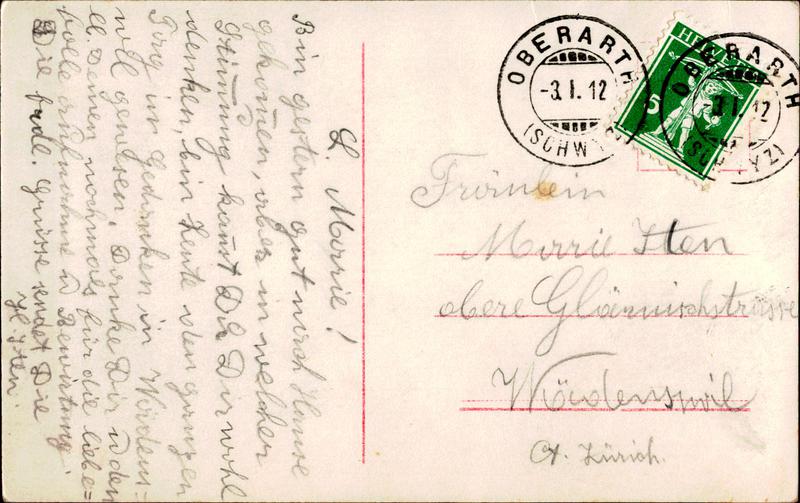 L. Marrie!
Bin gestern gut nach Hause
gekomen, aber in welcher
Stimung kanst Du Dir wohl
denken, bin heute den ganzen
Tag in Gedanken in Wädens-
wil gewesen. Danke Dir u den
ll. Deinen nochmals für die liebe-
volle aufnahme u Bewirtung.
Die frdl. Grüsse sendet Die
Iten.
OBERARTH
-3.I.12
(SCHWYZ)
HELVETIA
5
OBERARTH
-3.I.12
(SCHWYZ)
Fräulein
Marrie Iten
obere Glärnischstrasse
Wädenswil
Ct. Zürich.